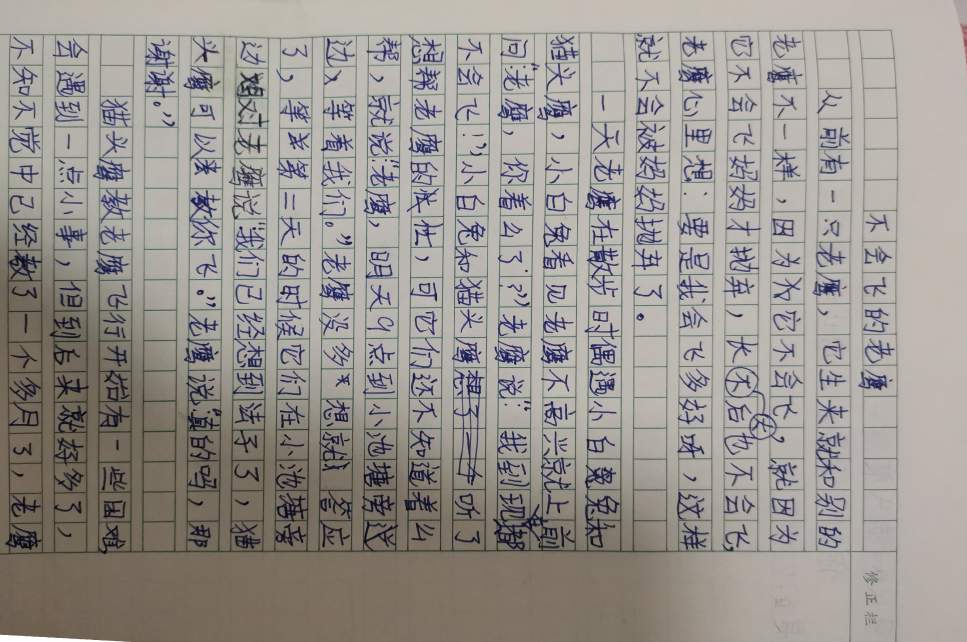 不会飞的老鹰
从前有一只老鹰，它生来就和别的
老鹰不一样，因为它不会飞，就因为
它不会飞妈妈才抛弃，长大后也不会飞，
老鹰心里想：要是我会飞多好呀，这样
就不会被妈妈抛弃了。
一天老鹰在散步时偶遇小白兔和
猫头鹰，小白兔看见老鹰不高兴就上前
问“老鹰，你着么了？”老鹰说：我到现在都
不会飞！”小白兔和猫头鹰听了
想帮老鹰的忙，可它们还不知道着么
帮，就说“老鹰，明天9点到小池塘旁边
边，等着我们。”老鹰没多想就答应
了，等第二天的时候它们在小池塘旁
边对老鹰说“我们已经想到法子了，猫
头鹰可以教你飞。”老鹰说“真的吗，那
谢谢。”
猫头鹰教老鹰飞行开始有一些困难
会遇到一点小事，但到后来就好多了，
不知不觉中已经教了一个多月了，老鹰
修正栏